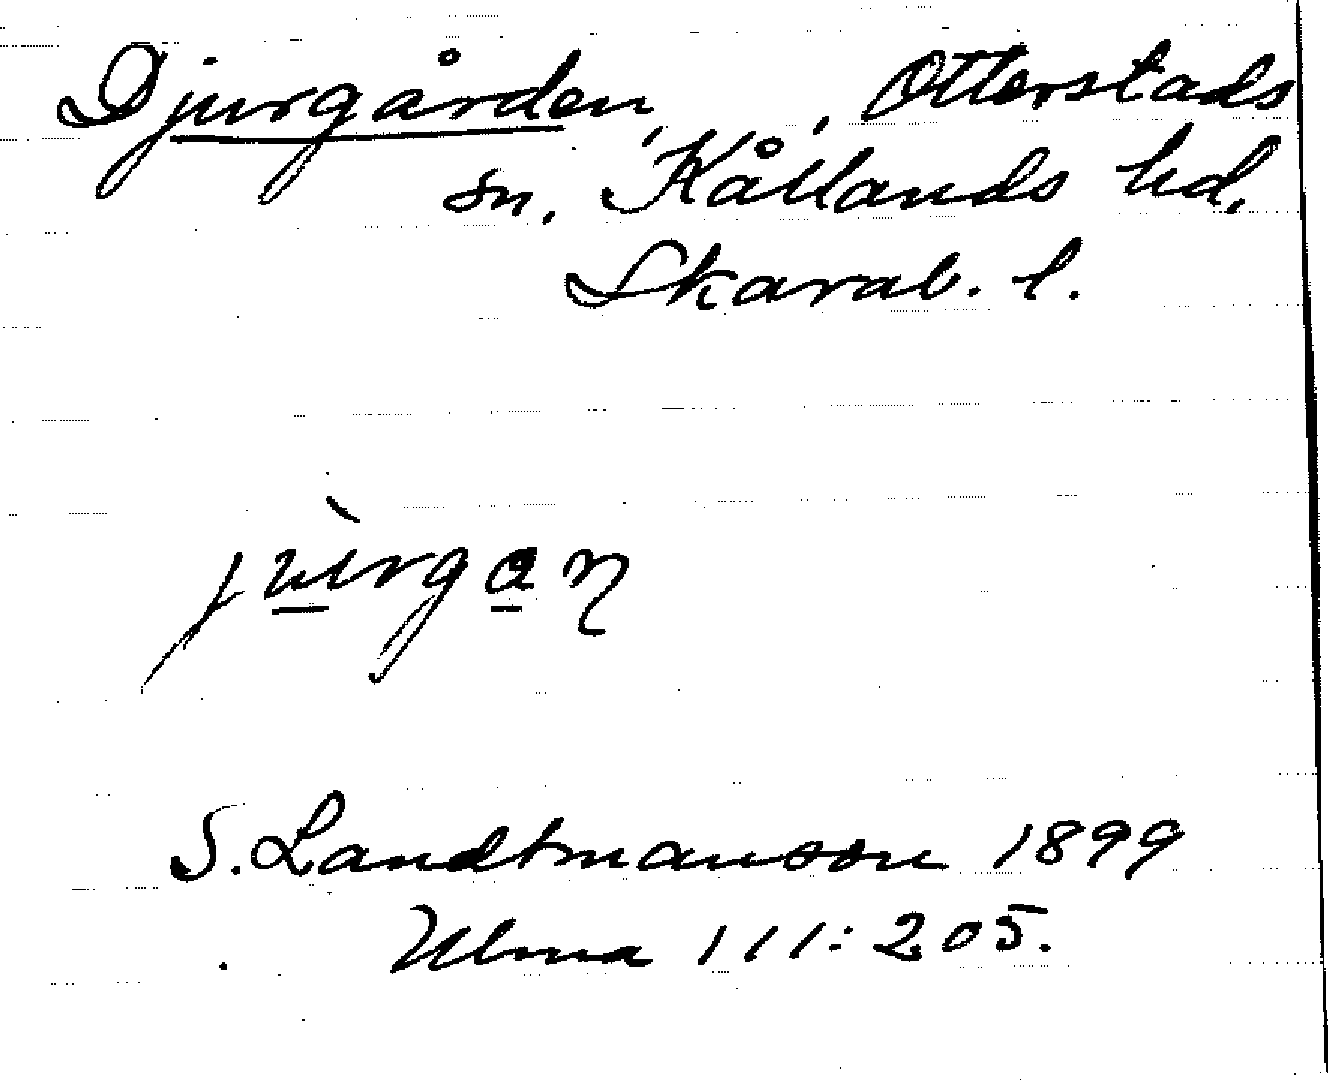 Djurgården, Otterstads
sn, Kållands hd,
Skarab. l.
jùrgan
S. Landtmanson 1899
Ulma 111:205.